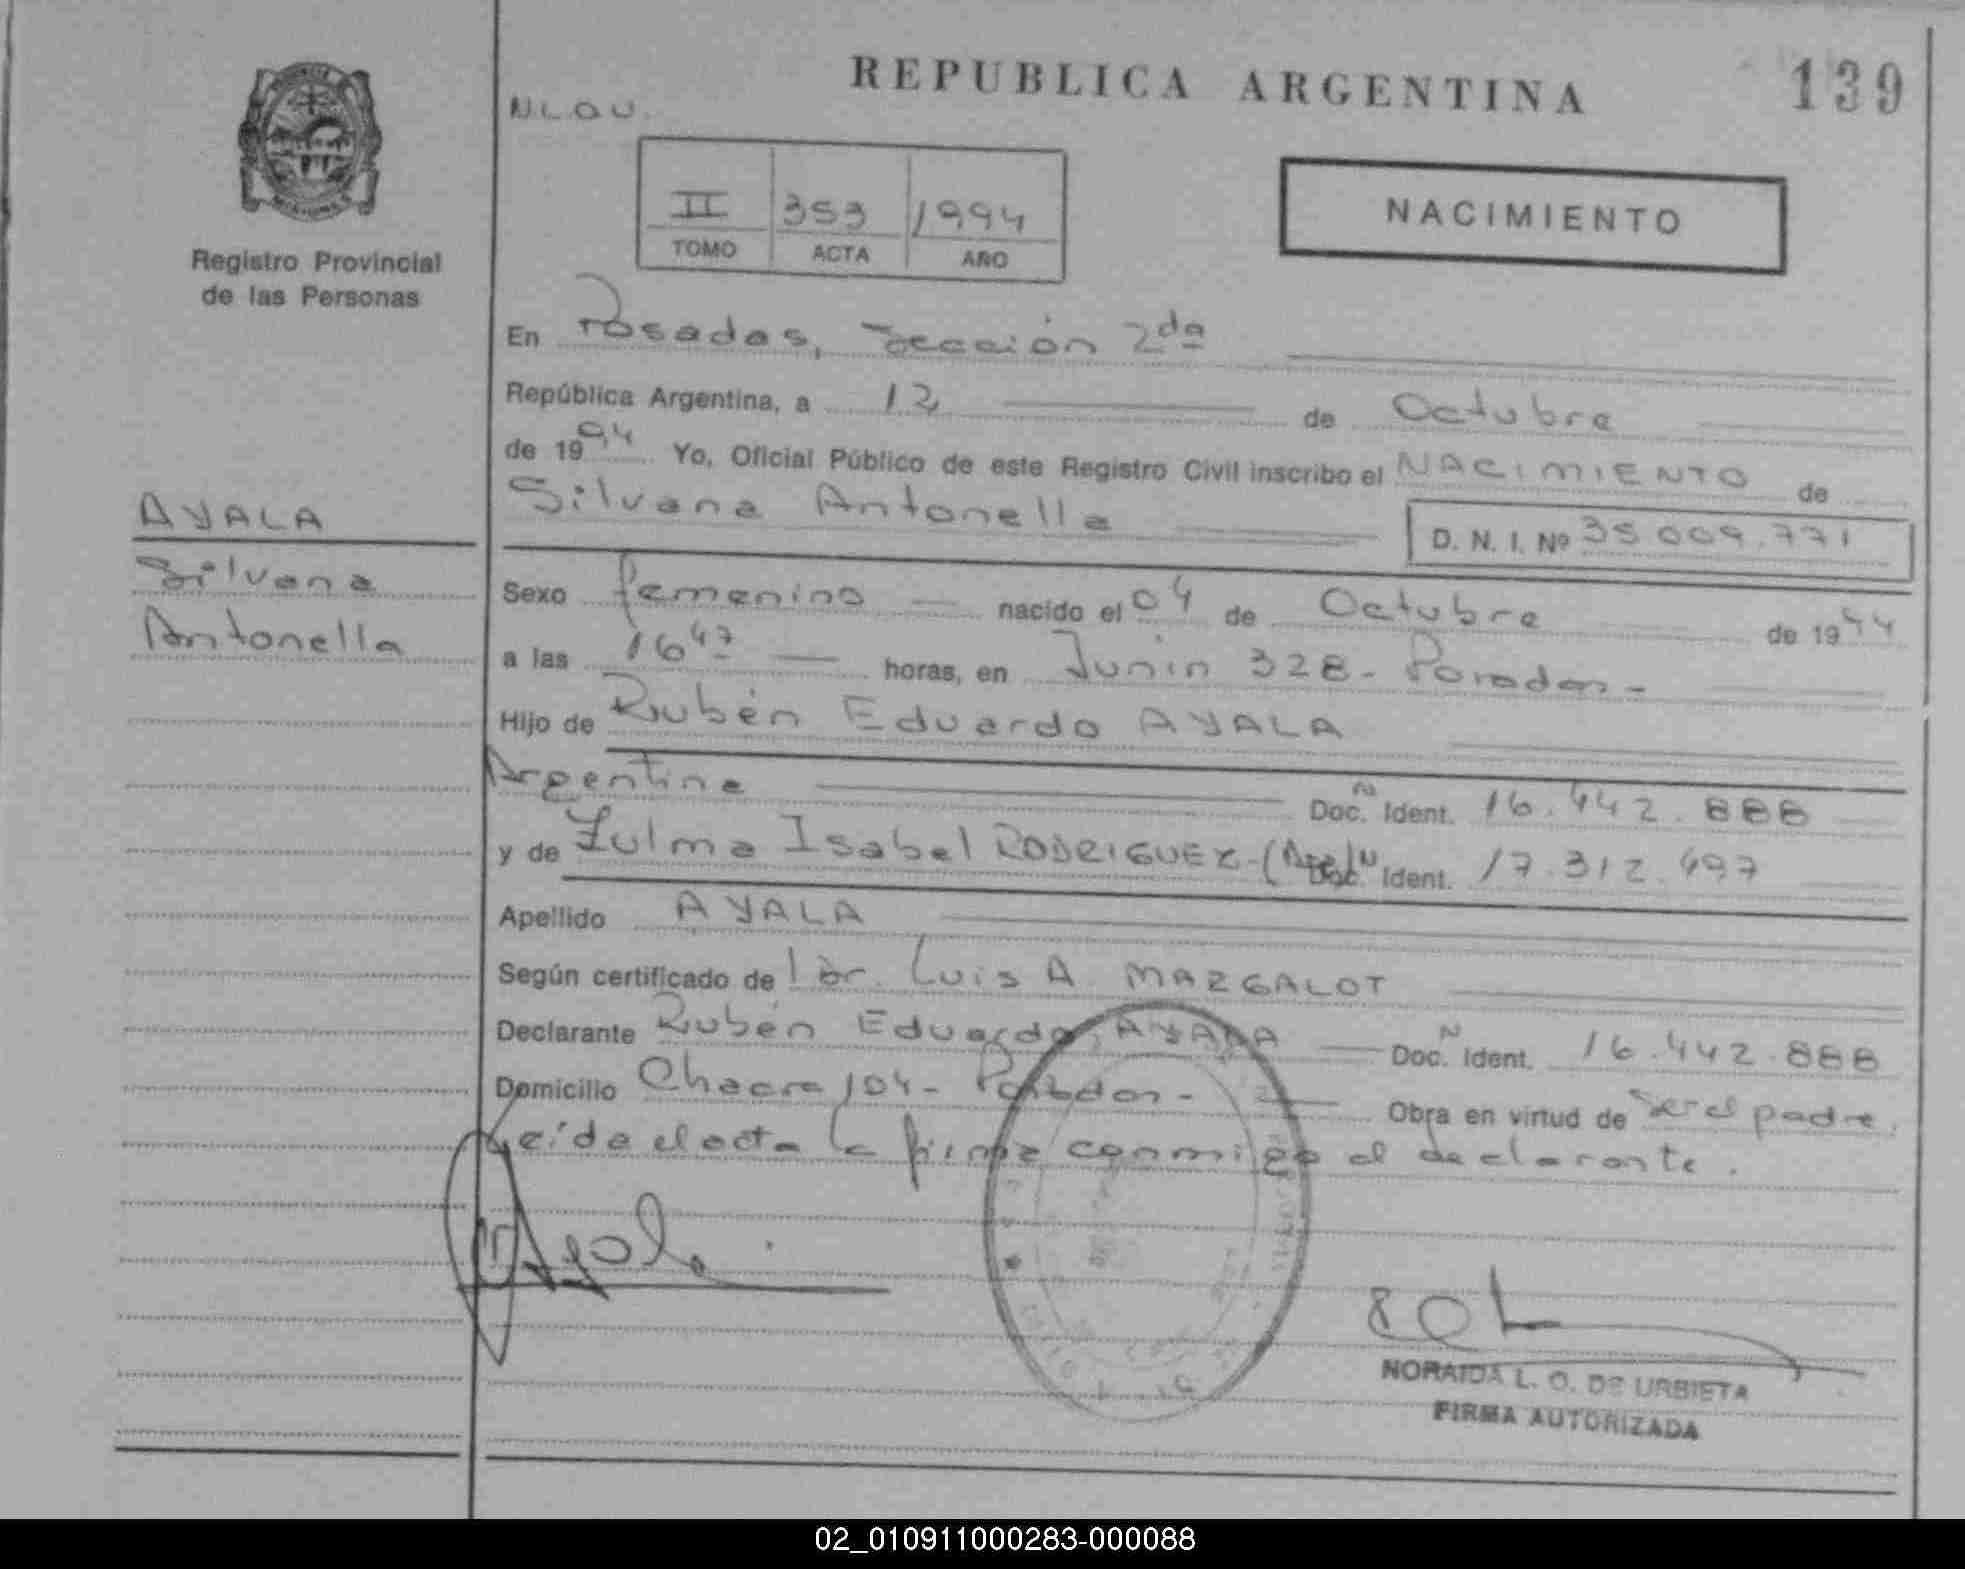 REPUBLICA ARGENTINA
139
N.L.O.U.
II 353 1994
TOMO ACTA AÑO
NACIMIENTO
Registro Provincial
de las Personas
En Posadas, Sección 2da
República Argentina, a 12 de Octubre
de 1994 Yo, Oficial Público de este Registro Civil inscribo el NACIMIENTO de
Silvana Antonella
D. N. I. Nº 35 009.771
AYALA
Silvana
Antonella
Sexo femenino nacido el 04 de Octubre de 1994
a las 16 47 horas, en Junin 328 - Posadas -
Hijo de Rubén Eduardo AYALA
Argentina Doc. N Ident. 16.442.888
y de Zulma Isabel RODRIGUEZ - (Arg) Doc. N Ident. 17.312.497
Apellido AYALA
Según certificado de l Dr. Luis A. MAZGALOT
Declarante Rubén Eduardo AYALA Doc. N Ident. 16.442.888
Domicilio Chacra 104 - Posadas - Obra en virtud de ser el padre.
Leída el acta la firma conmigo el declarante.
Ayala
NORAIDA L. O. DE URBIETA
FIRMA AUTORIZADA
02_010911000283-000088